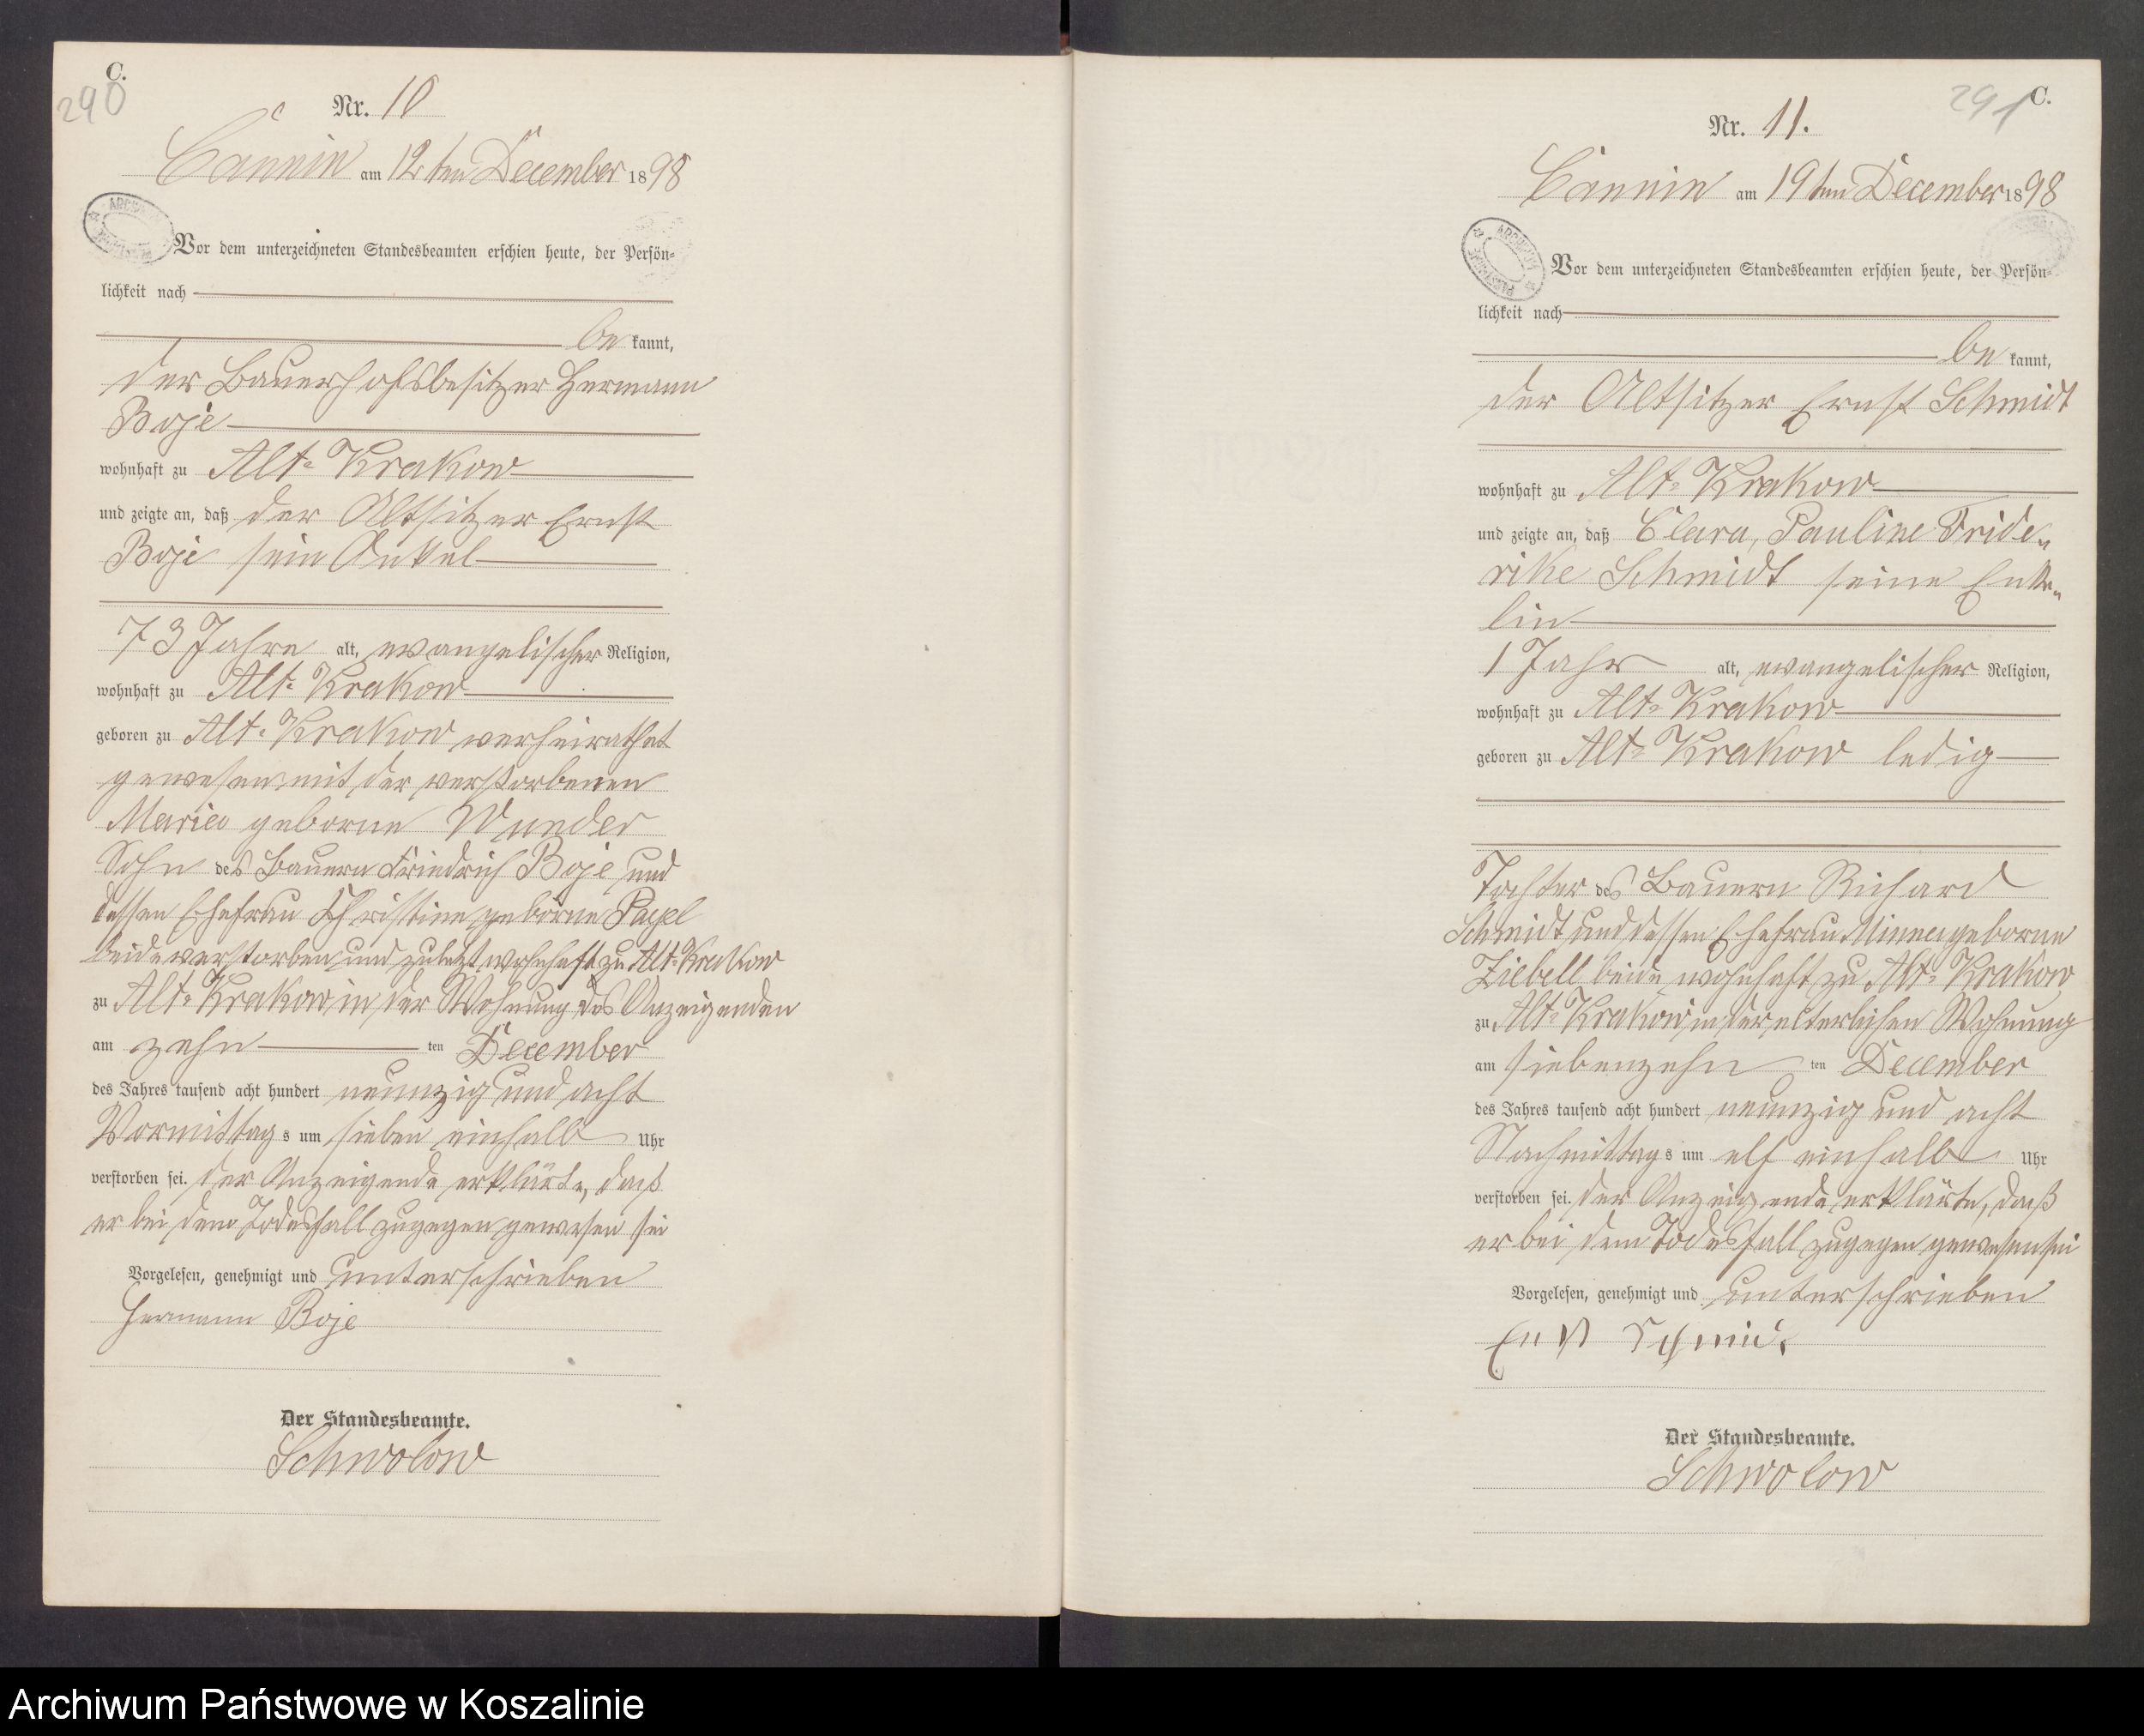 C.
290
Nr. 10
Cannin am 12ten December 1898
Vor dem unterzeichneten Standesbeamten erschien heute, der Persön-
lichkeit nach
be kannt,
der Bauerhofsbesitzer Hermann
Boje
wohnhaft zu Alt-Krakow
und zeigte an, daß der Altsitzer Ernst
Boje sein Onkel
73 Jahre alt, evangelischer Religion,
wohnhaft zu Alt-Krakow
geboren zu Alt-Krakow verheirathet
gewesen mit der verstorbenen
Marie geborne Wunder
Sohn des Bauern Friedrich Boje und
dessen Ehefrau Christine geborne Pagel
beide verstorben und zuletzt wohnhaft zu Alt-Krakow
zu Alt-Krakow in der Wohnung des Anzeigenden
am zehn ten December
des Jahres tausend acht hundert neunzig und acht
Vormittags um sieben einhalb Uhr
verstorben sei. der Anzeigende erklärte, daß
er bei dem Todesfall zugegen gewesen sei
Vorgelesen, genehmigt und unterschrieben
Hermann Boje
Der Standesbeamte.
Schwolow
291
C.
Nr. 11.
Cannin am 19ten December 1898
Vor dem unterzeichneten Standesbeamten erschien heute, der Persön-
lichkeit nach
be kannt,
der Altsitzer Ernst Schmidt
wohnhaft zu Alt-Krakow
und zeigte an, daß Clara, Pauline Fride-
rike Schmidt seine Enke-
lin
1 Jahr alt, evangelischer Religion,
wohnhaft zu Alt-Krakow
geboren zu Alt-Krakow ledig
Tochter des Bauern Richard
Schmidt und dessen Ehefrau Minna geborne
Ziebell beide wohnhaft zu Alt-Krakow
zu Alt-Krakow in der elterlichen Wohnung
am siebenzehn ten December
des Jahres tausend acht hundert neunzig und acht
Nachmittags um elf einhalb Uhr
verstorben sei. der Anzeigende erklärte, daß
er bei dem Todesfall zugegen gewesen sei
Vorgelesen, genehmigt und unterschrieben
Ernst Schmidt
Der Standesbeamte.
Schwolow
Archiwum Państwowe w Koszalinie